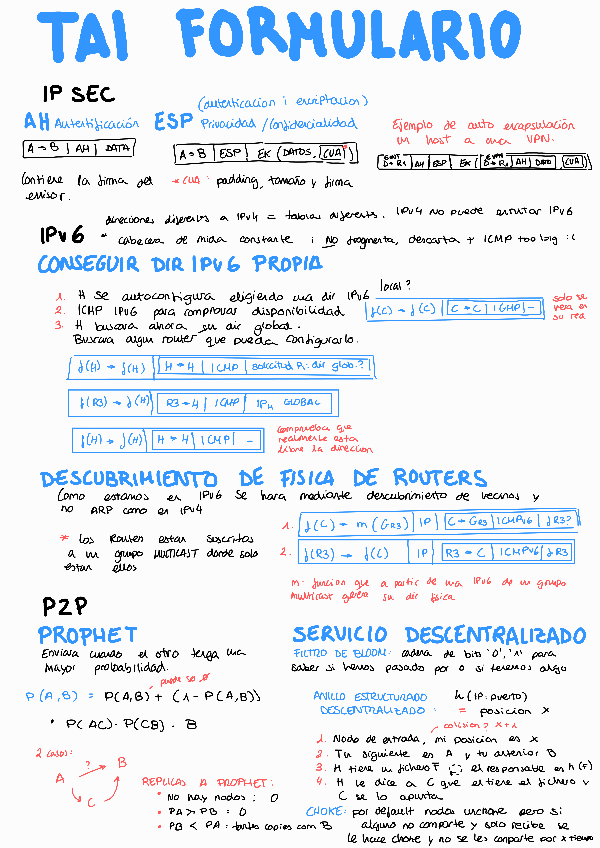 TAI FORMULARIO
IP SEC
(autenticacion i encriptacion)
AH Autentificación
ESP Privacidad / Confidencialidad
Ejemplo de auto encapsulación
un host a una VPN.
A → B | AH | DATA
A → B | ESP | EK (DATOS, CUA)
Contiene la firma del
emisor.
* CUA: padding, tamaño y firma
direcciones diferentes a IPv4 = tablas diferents. IPv4 no puede enrutar IPv6
IPv6 * cabecera de mida constante i NO fragmenta, descarta + ICMP too big :(
CONSEGUIR DIR IPv6 PROPIA
local?
1. H se autoconfigura eligiendo una dir IPv6
2. ICMP IPv6 para comprovar disponibilidad
f(C) → f(C) | C → C | ICMP | -
solo se
vera en
su red
3. H buscara ahora su dir global.
Buscara algun router que pueda configurarlo.
f(H) → f(H) | H → H | ICMP | solicitud R: dir glob.?
f(R3) → f(H) | R3 → H | ICMP | IPH GLOBAL
f(H) → f(H) | H → H | ICMP | -
Comprueba que
realmente esta
libre la direccion
DESCUBRIMIENTO DE FISICA DE ROUTERS
Como estamos en IPv6 se hara mediante descubrimiento de vecinos y
no ARP como en IPv4
1. f(C) → m(GR3) | IP | C → GR3 | ICMPv6 | fR3?
* Los Routers estan suscritos
a un grupo MULTICAST donde solo
estan ellos
2. f(R3) → f(C) | IP | R3 → C | ICMPV6 | fR3
m: funcion que a partir de una IPv6 de un grupo
multicast genera su dir fisica
P2P
PROPHET
Enviara cuando el otro tenga una
Mayor probabilidad.
puede ser 0
P(A,B) = P(A,B) + (1 - P(A,B))
* P(AC) · P(CB) · B
2 casos:
A ? B
C
REPLICAS A PROPHET:
• No hay nodos : 0
• PA > PB = 0
• PB < PA : tantas copies com B
SERVICIO DESCENTRALIZADO
FILTRO DE BLOOM: cadena de bits '0', '1' para
saber si hemos pasado por o si tenemos algo
ANILLO ESTRUCTURADO h(IP:puerto)
DESCENTRALIZADO: = posicion X
colision? X+1
1. Nodo de entrada, mi posicion es X
2. Tu siguiente es A y tu anterior B
3. H tiene un fichero F el responsable es h(F)
4. H le dice a C que el tiene el fichero y
C se lo apunta.
CHOKE: por default nodos unchoke pero si
alguno no comparte y solo recibe se
le hace choke y no se les comparte por X tiempo